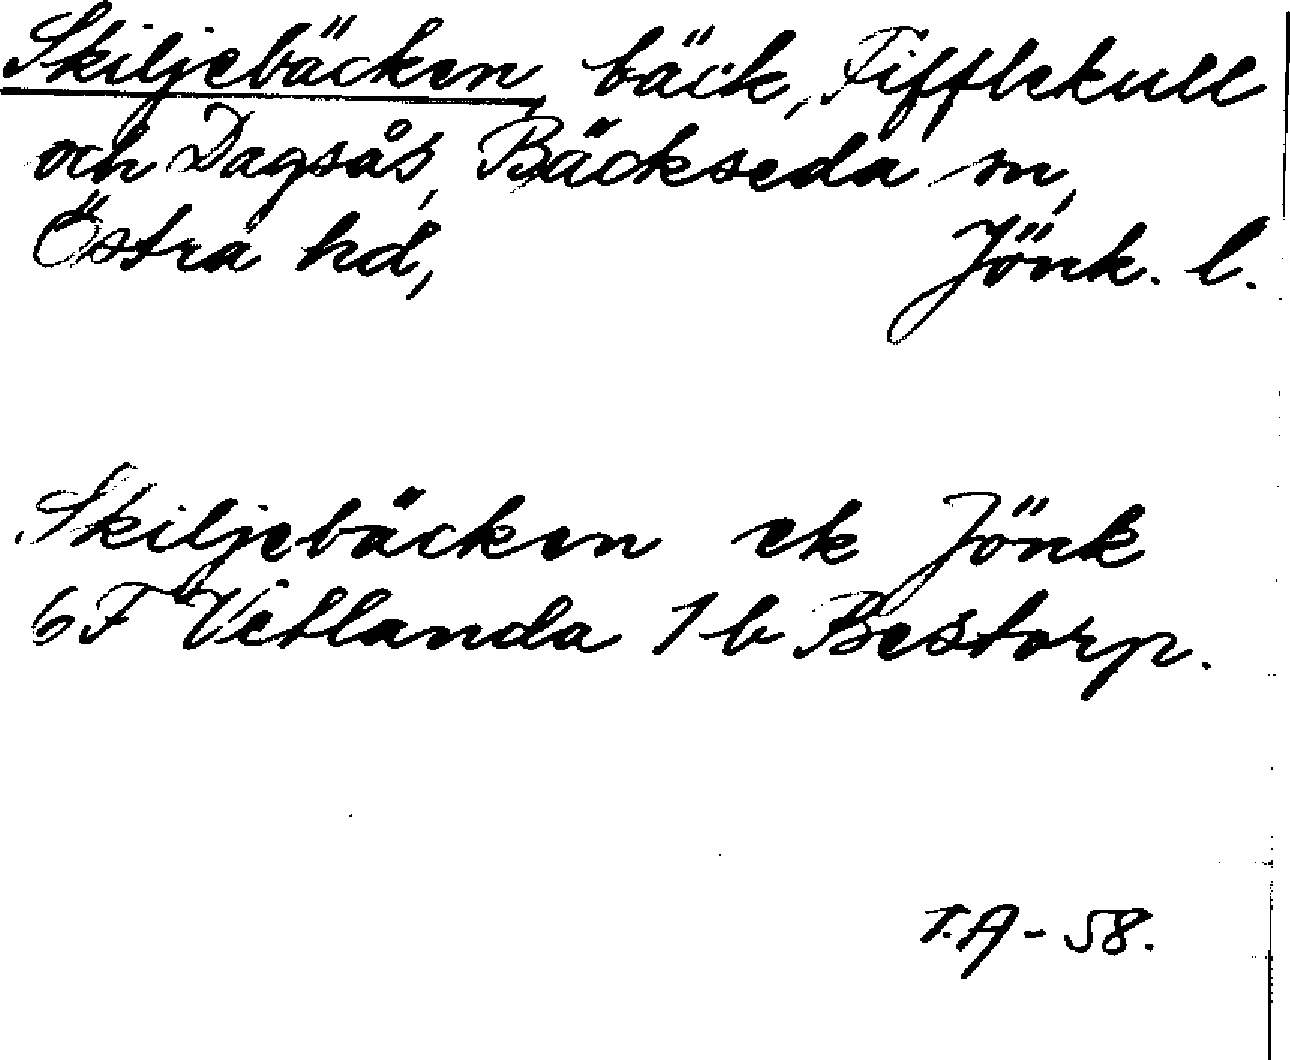 Skiljebäcken, bäck, Fifflekull
och Dagsås, Bäckseda sn,
Östra hd, Jönk. l.
Skiljebäcken ek Jönk
6F Vetlanda 1b Bestorp.
T.A - 58.